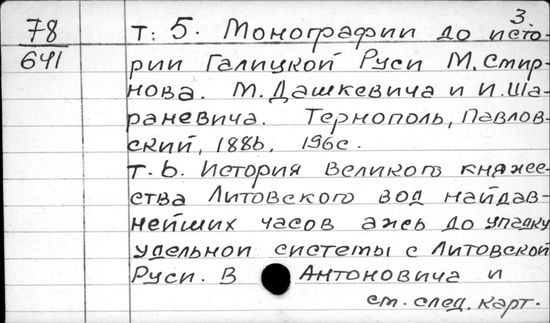 3.
78
641
т. 5. Монографии до исто-
рии Галицкой Руси М. Смир-
нова. М. Дашкевича и И. Ша-
раневича. Тернополь, Павлов-
ский, 1886, 196с.
т. 6. История Великого княже-
ства Литовского вод найдав-
нейших часов ажь до упадку
удельной системы с Литовской
Руси. В Антоновича и
см. след. карт.